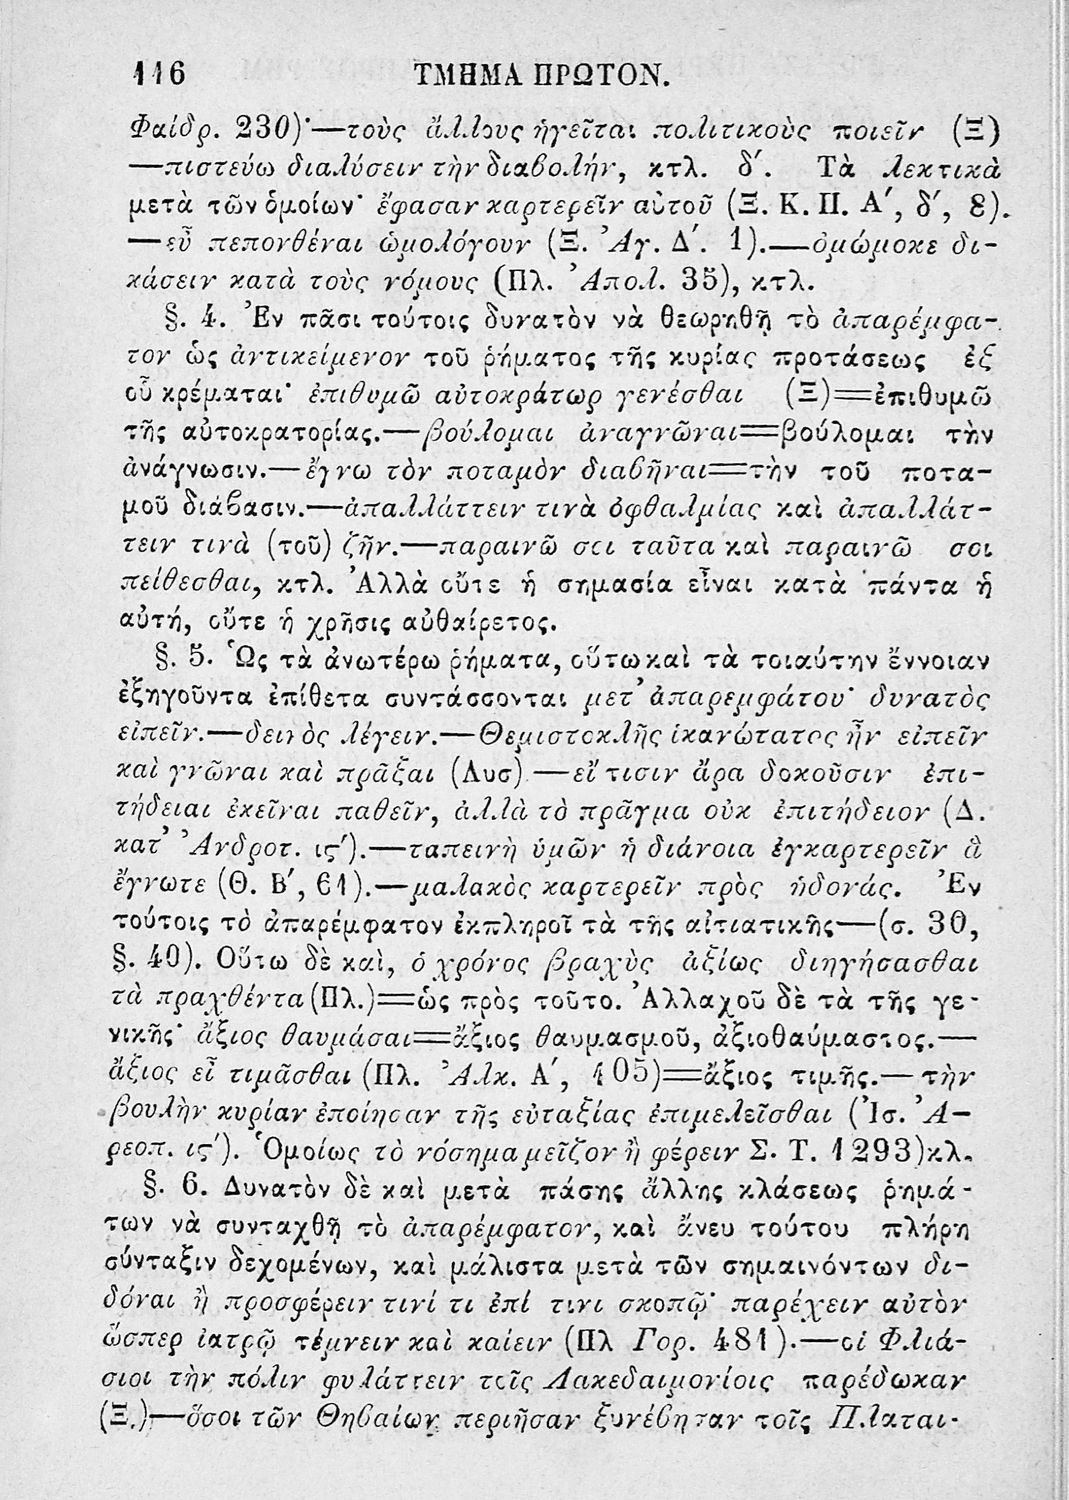 116 ΤΜΗΜΑ ΠΡΩΤΟΝ.
Φαίδρ. 230)·—τοὺς ἄλλους ἡγεῖται πολιτικοὺς ποιεῖν (Ξ)
—πιστεύω διαλύσειν τὴν διαβολήν, κτλ. δ΄. Τὰ λεκτικὰ
μετὰ τῶν ὁμοίων· ἔφασαν καρτερεῖν αὐτοῦ (Ξ. Κ. Π. Α΄, δ΄, 8).
—εὖ πεπονθέναι ὡμολόγουν (Ξ. Ἀγ. Δ΄. 1).—ὀμώμοκε δι-
κάσειν κατὰ τοὺς νόμους (Πλ. Ἀπολ. 35), κτλ.
§. 4. Ἐν πᾶσι τούτοις δυνατὸν νὰ θεωρηθῇ τὸ ἀπαρέμφα-
τον ὡς ἀντικείμενον τοῦ ῥήματος τῆς κυρίας προτάσεως ἐξ
οὗ κρέμαται· ἐπιθυμῶ αὐτοκράτωρ γενέσθαι (Ξ)=ἐπιθυμῶ
τῆς αὐτοκρατορίας.—βούλομαι ἀναγνῶναι=βούλομαι τὴν
ἀνάγνωσιν.—ἔγνω τὸν ποταμὸν διαβῆναι=τὴν τοῦ ποτα-
μοῦ διάβασιν.—ἀπαλλάττειν τινὰ ὀφθαλμίας καὶ ἀπαλλάτ-
τειν τινὰ (τοῦ) ζῆν.—παραινῶ σοι ταῦτα καὶ παραινῶ σοι
πείθεσθαι, κτλ. Ἀλλὰ οὔτε ἡ σημασία εἶναι κατὰ πάντα ἡ
αὐτή, οὔτε ἡ χρῆσις αὐθαίρετος.
§. 5. Ὡς τὰ ἀνωτέρω ῥήματα, οὕτω καὶ τὰ τοιαύτην ἔννοιαν
ἐξηγοῦντα ἐπίθετα συντάσσονται μετ᾽ ἀπαρεμφάτου· δυνατὸς
εἰπεῖν.—δεινὸς λέγειν.—Θεμιστοκλῆς ἱκανώτατος ἦν εἰπεῖν
καὶ γνῶναι καὶ πρᾶξαι (Λυσ).—εἴ τισιν ἄρα δοκοῦσιν ἐπι-
τήδειαι ἐκεῖναι παθεῖν, ἀλλὰ τὸ πρᾶγμα οὐκ ἐπιτήδειον (Δ.
κατ᾽ Ἀνδροτ. ις΄).—ταπεινὴ ὑμῶν ἡ διάνοια ἐγκαρτερεῖν ἃ
ἔγνωτε (Θ. Β΄, 61).—μαλακὸς καρτερεῖν πρὸς ἡδονάς. Ἐν
τούτοις τὸ ἀπαρέμφατον ἐκπληροῖ τὰ τῆς αἰτιατικῆς—(σ. 30,
§. 40). Οὕτω δὲ καὶ, ὁ χρόνος βραχὺς ἀξίως διηγήσασθαι
τὰ πραχθέντα (Πλ.)=ὡς πρὸς τοῦτο. Ἀλλαχοῦ δὲ τὰ τῆς γε-
νικῆς· ἄξιος θαυμάσαι=ἄξιος θαυμασμοῦ, ἀξιοθαύμαστος.—
ἄξιος εἶ τιμᾶσθαι (Πλ. Ἀλκ. Α΄, 105)=ἄξιος τιμῆς.—τὴν
βουλὴν κυρίαν ἐποίησαν τῆς εὐταξίας ἐπιμελεῖσθαι (Ἰσ. Ἀ-
ρεοπ. ις΄). Ὁμοίως τὸ νόσημα μεῖζον ἢ φέρειν Σ. Τ. 1293) κλ.
§. 6. Δυνατὸν δὲ καὶ μετὰ πάσης ἄλλης κλάσεως ῥημά-
των νὰ συνταχθῇ τὸ ἀπαρέμφατον, καὶ ἄνευ τούτου πλήρη
σύνταξιν δεχομένων, καὶ μάλιστα μετὰ τῶν σημαινόντων δι-
δόναι ἢ προσφέρειν τινί τι ἐπί τινι σκοπῷ· παρέχειν αὑτὸν
ὥσπερ ἰατρῷ τέμνειν καὶ καίειν (Πλ Γορ. 481).—οἱ Φλιά-
σιοι τὴν πόλιν φυλάττειν τοῖς Λακεδαιμονίοις παρέδωκαν
(Ξ.)—ὅσοι τῶν Θηβαίων περιῆσαν ξυνέβησαν τοῖς Πλαται-